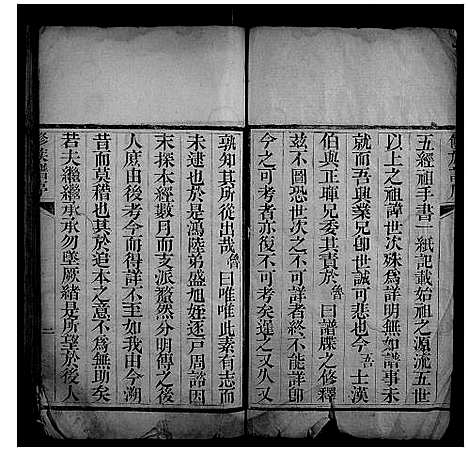 五經祖手書一紙記載始祖之源流五世
以上之祖諱世次殊為詳明無如譜事未
就而吾興業兄卽世誠可悲也今吾士漢
伯與正暉兄委其責於魯曰譜牒之修釋
茲不圖恐世次之不可詳者終不能詳卽
今之可考者亦復不可考矣遲之又久又
孰知其所從出哉魯曰唯唯此素有志而
未逮也於是鴻陸弟盛旭姪逐戸周諮因
未探本經數月而支派釐然分明傳之後
人庶由後考今而得詳不至如我由今溯
昔而莫稽也其於追本之意不為無助矣
若夫繼繼承承勿墜厥緒是所望於後人
修族譜序